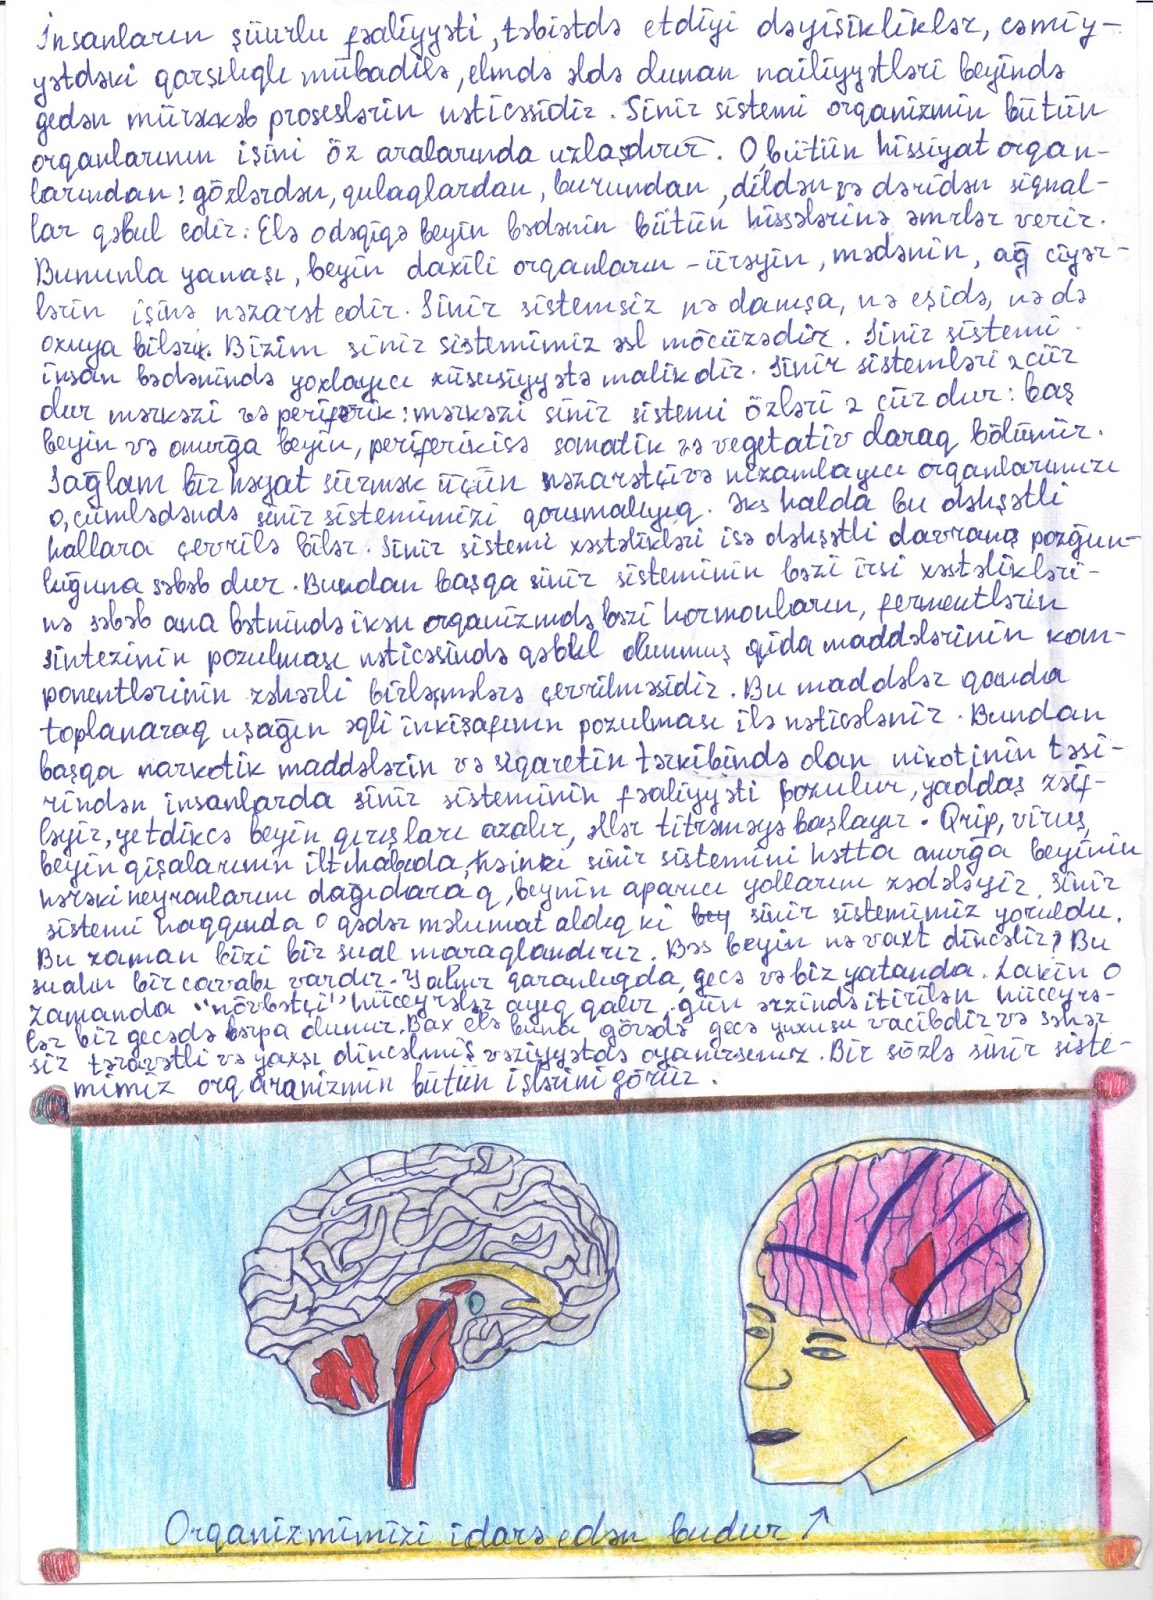 İnsanların şüurlu fəaliyyəti, təbiətdə etdiyi dəyişikliklər, cəmiy-
yətdəki qarşılıqlı mübadilə, elmdə əldə olunan nailiyyətləri beyində
gedən mürəkkəb proseslərin nəticəsidir. Sinir sistemi orqanizmin bütün
orqanlarının işini öz aralarında uzlaşdırır. O, bütün hissiyat orqan-
larından: gözlərdən, qulaqlardan, burundan, dildən və dəridən siqnal-
lar qəbul edir. Elə o dəqiqə beyin bədənin bütün hissələrinə əmrlər verir.
Bununla yanaşı, beyin daxili orqanların - ürəyin, mədənin, ağ ciyər-
lərin işinə nəzarət edir. Sinir sistemsiz nə danışa, nə eşidə, nə də
oxuya bilərik. Bizim sinir sistemimiz əsl möcüzədir. Sinir sistemi
insan bədənində yoxlayıcı xüsusiyyətə malikdir. Sinir sistemləri 2 cür
dür mərkəzi və periferik: mərkəzi sinir sistemi özləri 2 cür dur: baş
beyin və onurğa beyin, periferik isə somatik və vegetativ olaraq bölünür.
Sağlam bir həyat sürmək üçün nəzarətçi və nizamlayıcı orqanlarımızı
o, cümlədəndə sinir sistemimizi qorumalıyıq. Əks halda bu dəhşətli
hallara çevrilə bilər. Sinir sistemi xəstəlikləri isə dəhşətli davranış pozğun-
luğuna səbəb dur. Bundan başqa sinir sisteminin bəzi irsi xəstəlikləri-
nə səbəb ana bətnində ikən orqanizmdə bəzi hormonların, fermentlərin
sintezinin pozulması nəticəsində qəbul olunmuş qida maddələrinin kom-
ponentlərinin zəhərli birləşmələrə çevrilməsidir. Bu maddələr qanda
toplanaraq uşağın əqli inkişafının pozulması ilə nəticələnir. Bundan
başqa narkotik maddələrin və siqaretin tərkibində olan nikotinin təsi-
rindən insanlarda sinir sisteminin fəaliyyəti pozulur, yaddaş zəif-
ləyir, yetdikcə beyin qırışları azalır, əllər titrəməyə başlayır. Qrip, virus,
beyin qişalarının iltihabıda, həinki sinir sistemini hətta onurğa beyinin
hərəki neyronlarını dağıdaraq, beynin aparıcı yollarını zədələyir. Sinir
sistemi haqqında o qədər məlumat aldıq ki bey sinir sistemimiz yoruldu.
Bu zaman bizi bir sual maraqlandırır. Bəs beyin nə vaxt dincəlir? Bu
sualın bir cavabı vardır. Yalnız qaranlıqda, gecə və biz yatanda. Lakin o
zamanda "növbətçi" hüceyrələr ayıq qalır. Gün ərzində itirilən hüceyrə-
lər bir gecədə bərpa olunur. Bax elə buna görədə gecə yuxusu vacibdir və səhər
siz təravətli və yaxşı dincəlmiş vəziyyətdə oyanırsınız. Bir sözlə sinir siste-
mimiz orqaranizmin bütün işlərini görür.
Orqanizmimizi idarə edən budur ↗